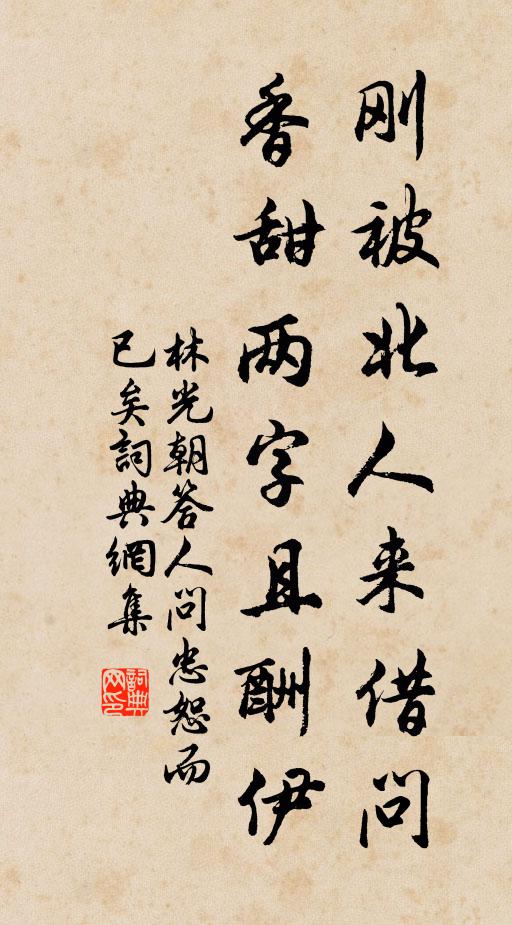 刚被北人来借问
香甜两字且酬伊
林光朝答人问忠恕而
已矣詞典網集
詞典
网印